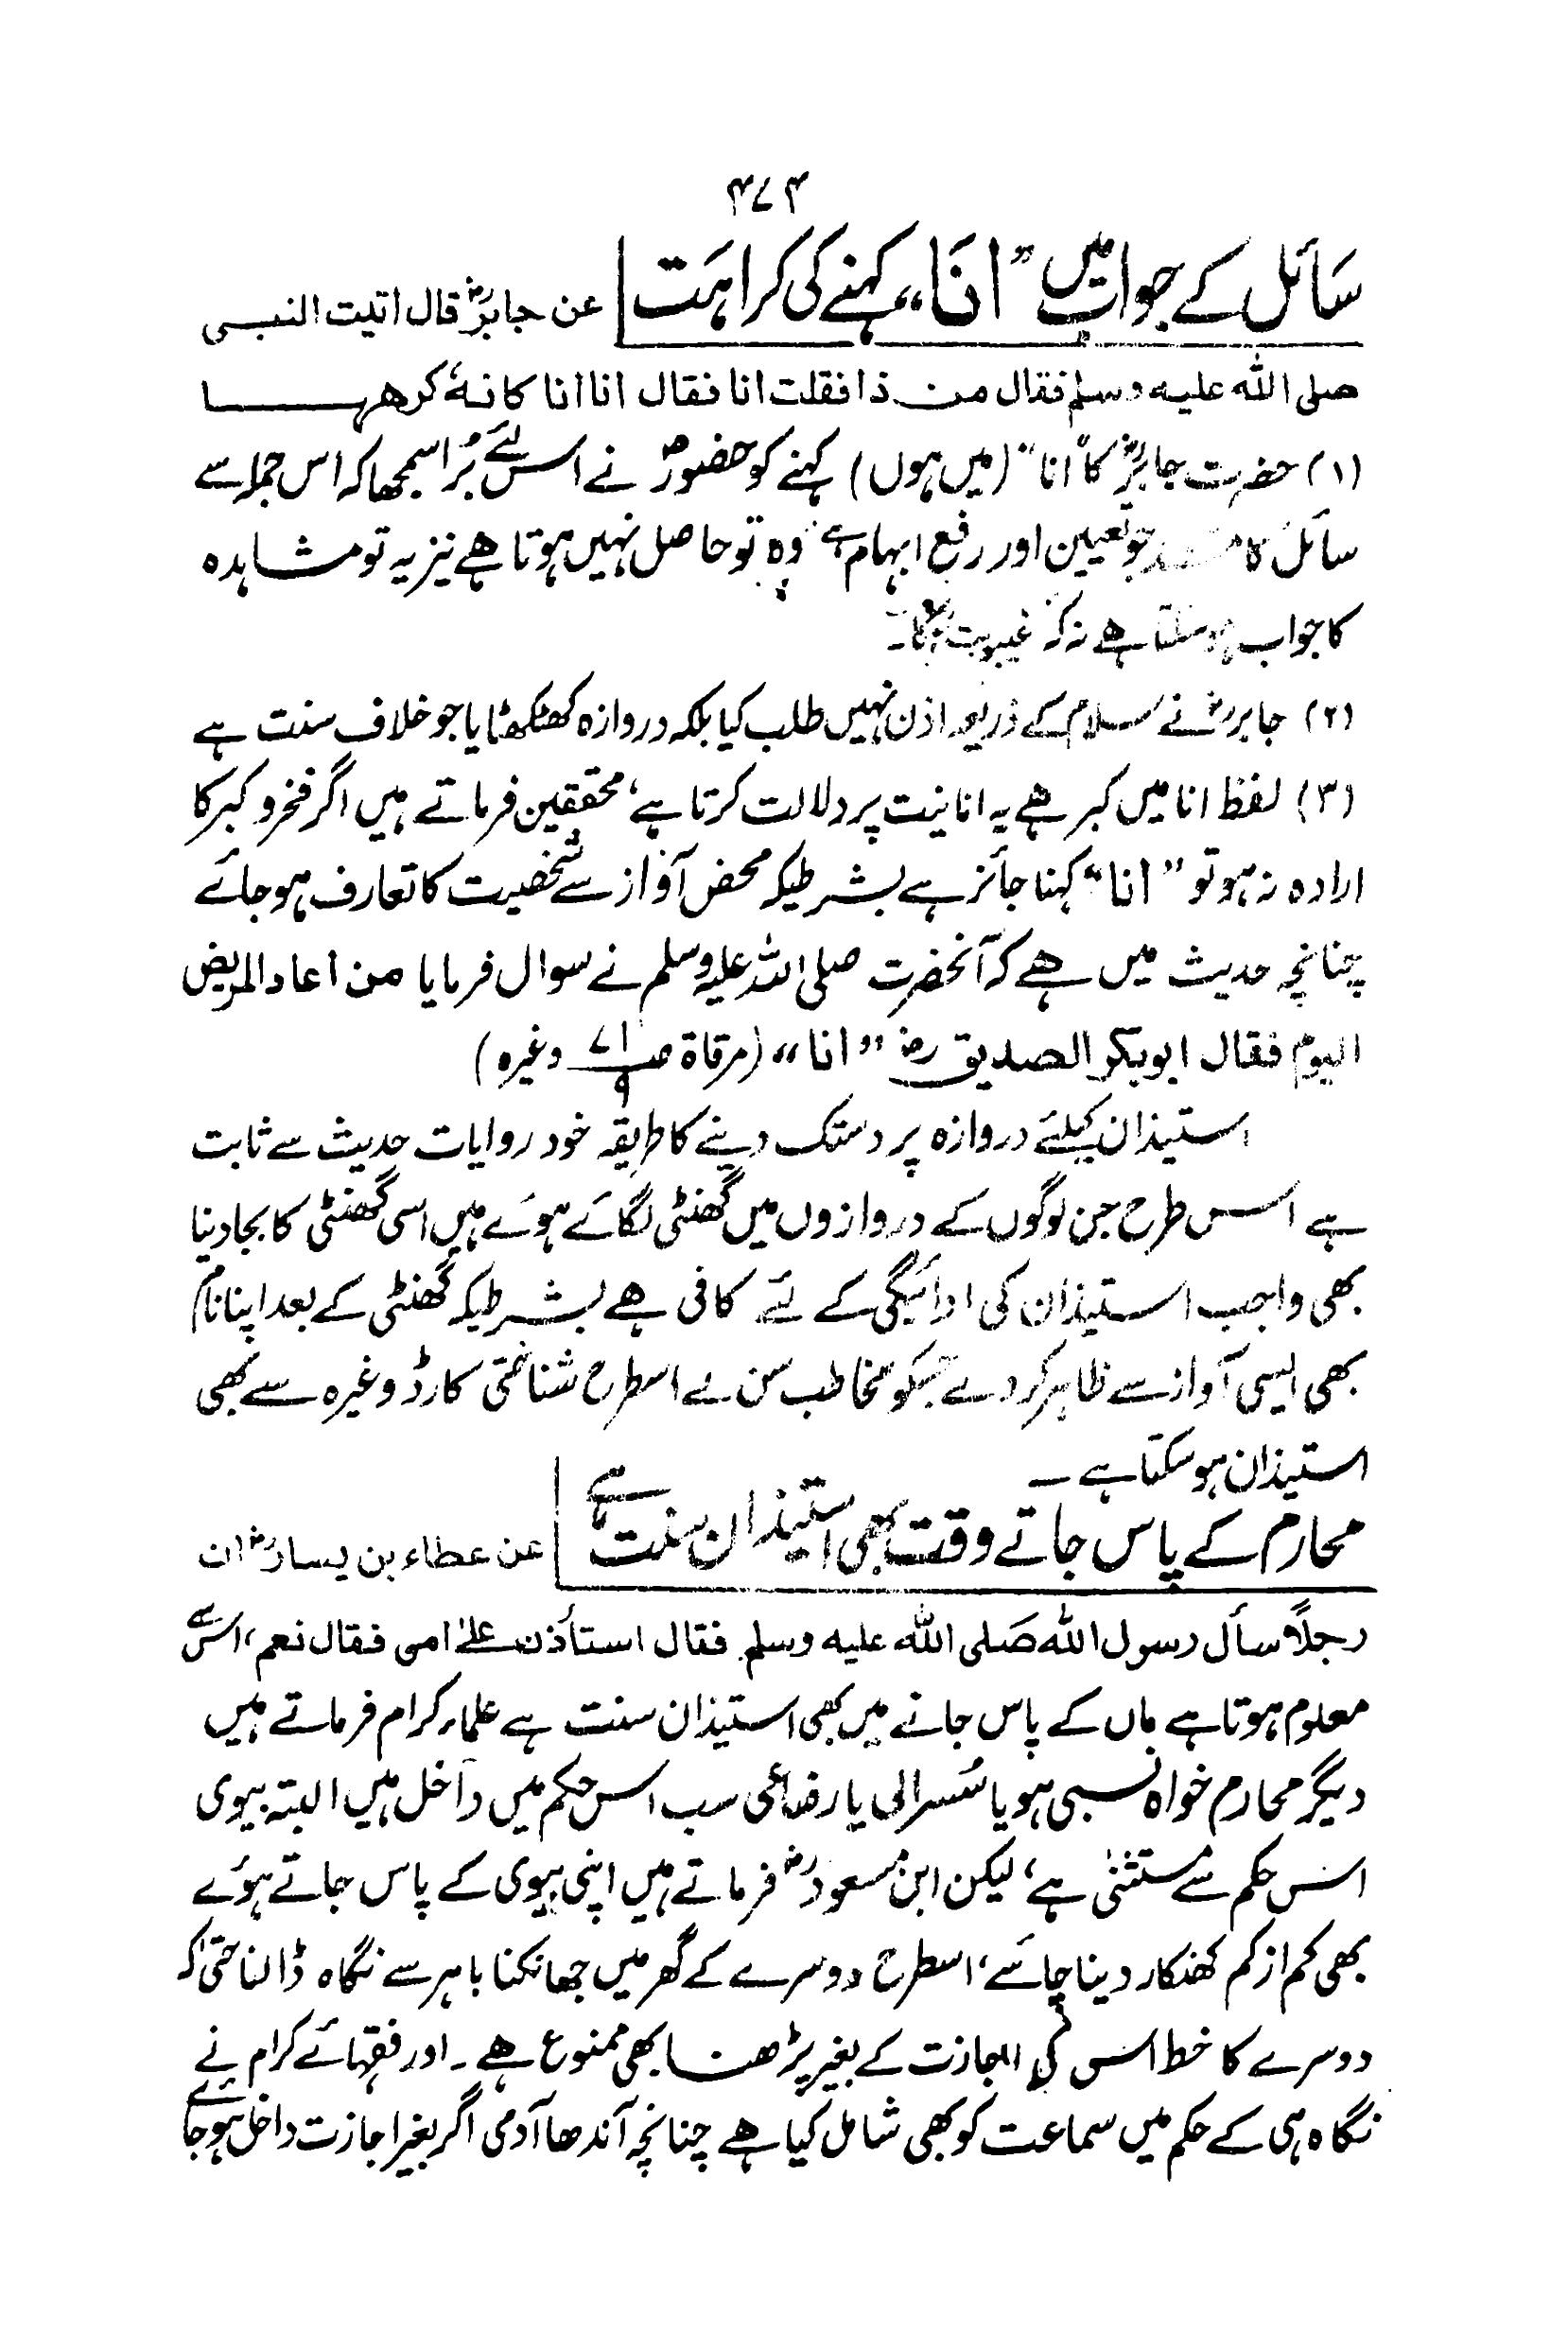 ۴۷۴
سائل کے جواب میں ”انا،، کہنے کی کراہت عن جابرؓ قال اتیت النبی
صلی اللہ علیہ وسلم فقال من ذا فقلت انا فقال انا انا کانہٗ کرھہا
(۱) حضرت جابرؓ کا ”انا“ (میں ہوں) کہنے کو حضورؐ نے اس لئے بُرا سمجھا کہ اس جملہ سے
سائل کا جو تعیین اور رفع ابہام ہے وہ تو حاصل نہیں ہوتا ہے نیز یہ تو مشاہدہ
کا جواب ہوسکتا ہے نہ کہ غیبوبت کا۔
(۲) جابرؓ نے سلام کے ذریعہ اذن نہیں طلب کیا بلکہ دروازہ کھٹکھٹایا جو خلاف سنت ہے
(۳) لفظ انا میں کبر ہے یہ انانیت پر دلالت کرتا ہے، محققین فرماتے ہیں اگر فخر و کبر کا
ارادہ نہ ہو تو ”انا“ کہنا جائز ہے بشرطیکہ محض آواز سے شخصیت کا تعارف ہوجائے
چنانچہ حدیث میں ہے کہ آنحضرت صلی اللہ علیہ وسلم نے سوال فرمایا من اعاد المریض
الیوم فقال ابوبکر الصدیق رض ”انا،، (مرقاۃ ص ۷۱/۹ وغیرہ)
استیذان کیلئے دروازہ پر دستک دینے کا طریقہ خود روایات حدیث سے ثابت
ہے اسس طرح جن لوگوں کے دروازوں میں گھنٹی لگائے ہوئے ہیں اسی گھنٹی کا بجادینا
بھی واجب استیذان کی ادائیگی کے لئے کافی ہے بشرطیکہ گھنٹی کے بعد اپنا نام
بھی ایسی آواز سے ظاہر کردے جسکو مخاطب سن لے اسطرح شناختی کارڈ وغیرہ سے بھی
استیذان ہوسکتا ہے ۔
محارم کے پاس جاتے وقت بھی استیذان سنت ہے عن عطاء بن یسارؓ ان
رجلاً سأل رسول اللہ صَلی اللہ علیہ وسلم فقال استأذن علیٰ امی فقال نعم، اس سے
معلوم ہوتا ہے ماں کے پاس جانے میں بھی استیذان سنت ہے علماء کرام فرماتے ہیں
دیگر محارم خواہ نسبی ہو یا سُسرالی یا رضاعی سب اس حکم میں داخل ہیں البتہ بیوی
اس حکم سے مستثنیٰ ہے، لیکن ابن مسعودؓ فرماتے ہیں اپنی بیوی کے پاس جاتے ہوئے
بھی کم از کم کھنکار دینا چاہئے، اسطرح دوسرے کے گھر میں جھانکنا باہر سے نگاہ ڈالنا حتیٰ کہ
دوسرے کا خط اس کی اجازت کے بغیر پڑھنا بھی ممنوع ہے ۔ اور فقہائے کرام نے
نگاہ ہی کے حکم میں سماعت کو بھی شامل کیا ہے چنانچہ آندھا آدمی اگر بغیر اجازت داخل ہوجائے